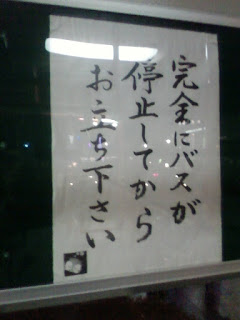 完全にバスが
停止してから
お立ち下さい